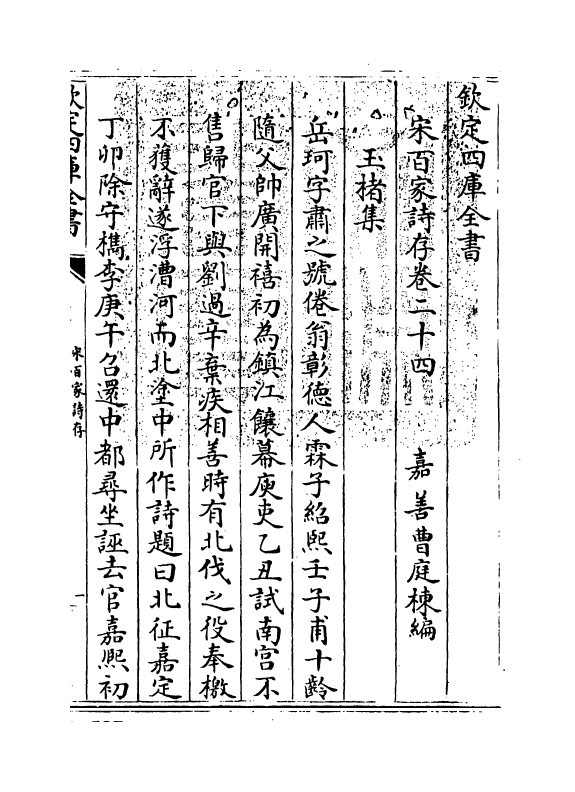 欽定四庫全書
宋百家詩存卷二十四　嘉善曹庭棟編
玉楮集
岳珂字肅之號倦翁彰德人霖子紹熙壬子甫十齡
隨父帥廣開禧初為鎮江饟幕庾吏乙丑試南宫不
售歸官下與劉過辛棄疾相善時有北伐之役奉檄
不獲辭遂浮漕河而北塗中所作詩題曰北征嘉定
丁卯除守檇李庚午召還中都尋坐誣去官嘉熙初
欽定四庫全書
宋百家詩存
一